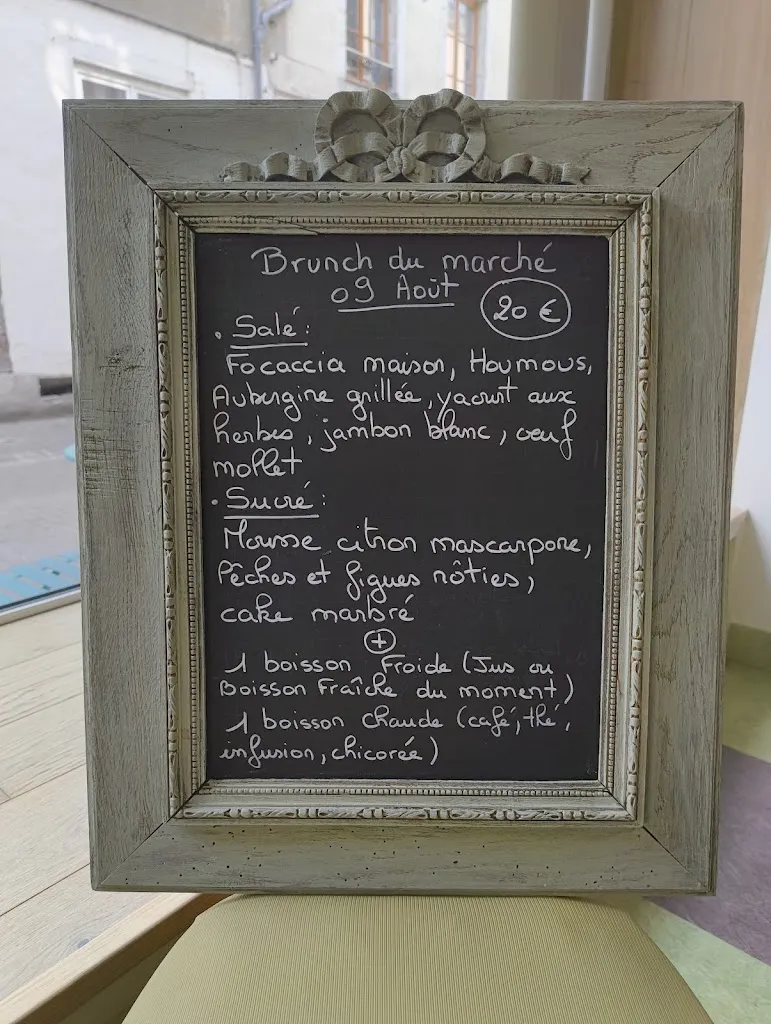 Brunch du marché
09 Août
20 €
• Salé :
Focaccia maison, Houmous,
Aubergine grillée, yaourt aux
herbes, jambon blanc, oeuf
mollet
• Sucré :
Mousse citron mascarpone,
Pêches et figues rôties,
cake marbré
+
1 boisson Froide (Jus ou
Boisson Fraîche du moment)
1 boisson chaude (café, thé,
infusion, chicorée)